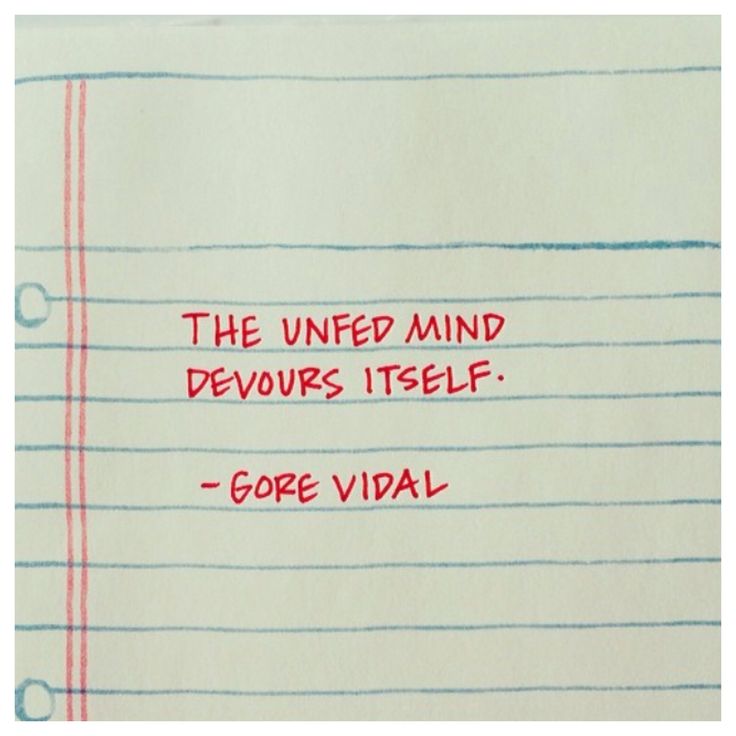 THE UNFED MIND
DEVOURS ITSELF.
- GORE VIDAL